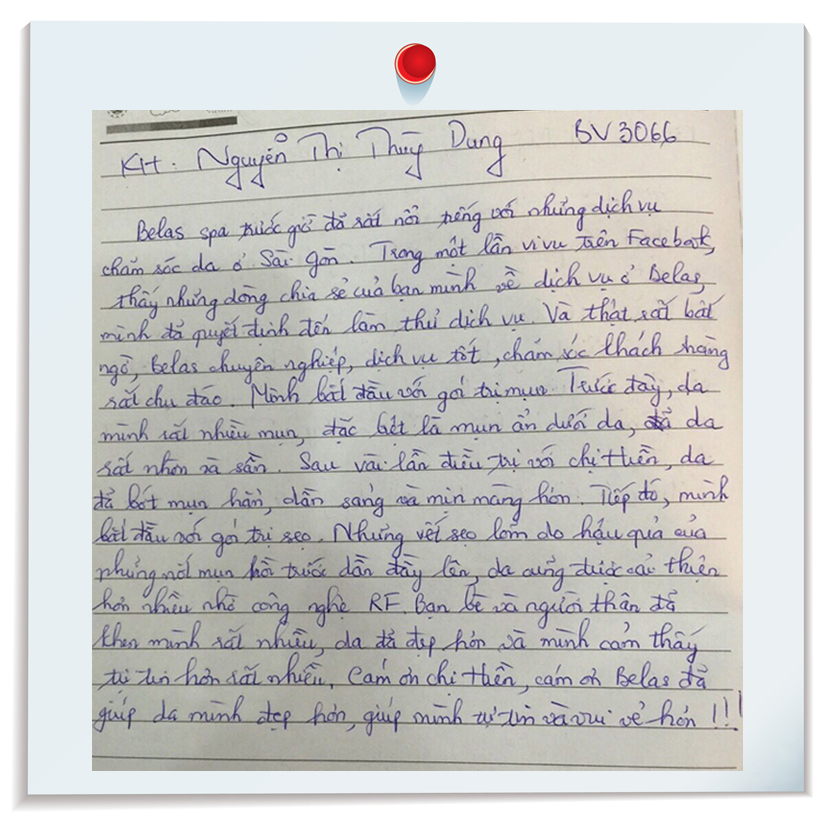 KH: Nguyễn Thị Thùy Dung BV3066
Belas spa trước giờ đã rất nổi tiếng với những dịch vụ
chăm sóc da ở Sài Gòn. Trong một lần vi vu trên Facebook,
thấy những dòng chia sẻ của bạn mình về dịch vụ ở Belas,
mình đã quyết định đến làm thử dịch vụ. Và thật rất bất
ngờ, Belas chuyên nghiệp, dịch vụ tốt, chăm sóc khách hàng
rất chu đáo. Mình bắt đầu với gói trị mụn. Trước đây, da
mình rất nhiều mụn, đặc biệt là mụn ẩn dưới da, da
rất nhờn và sần. Sau vài lần điều trị với chị Hiền, da
đã bớt mụn hẳn, dần sáng và mịn màng hơn. Tiếp đó, mình
bắt đầu với gói trị sẹo. Những vết sẹo lõm do hậu quả của
những nốt mụn hồi trước dần đầy lên, da cũng được cải thiện
hơn nhiều nhờ công nghệ RF. Bạn bè và người thân đã
khen mình rất nhiều, da đã đẹp hơn và mình cảm thấy
tự tin hơn rất nhiều. Cám ơn chị Hiền, cám ơn Belas đã
giúp da mình đẹp hơn, giúp mình tự tin và vui vẻ hơn !!!